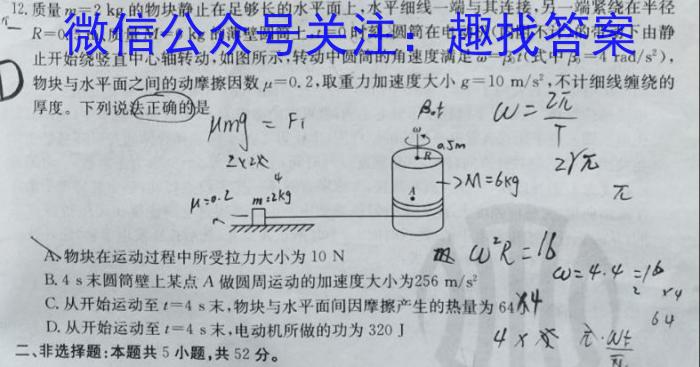 12. 质量 m=2 kg 的物块静止在足够长的水平面上,水平细线一端与其连接,另一端紧绕在半径
微信公众号关注:趣找答案
止开始绕竖直中心轴转动,如图所示,转动中圆筒的角速度满足
rad/s²),
物块与水平面之间的动摩擦因数 μ=0.2,取重力加速度大小 g=10 m/s²,不计细线缠绕的
厚度。下列说法正确的是
μmg = F₁
β₀t
ω = 2π/T
2×2×
4
ω
R
0.5m
2γπ
π
μ=0.2
m=2kg
A
M=6kg
A. 物块在运动过程中所受拉力大小为 10 N
ω²R=16
B. 4 s 末圆筒壁上某点 A 做圆周运动的加速度大小为256 m/s²
ω=4.4=16
C. 从开始运动至 t=4 s 末,物块与水平面间因摩擦产生的热量为 64
×4
64
D. 从开始运动至 t=4 s 末,电动机所做的功为 320 J
二、非选择题:本题共 5 小题,共 52 分。